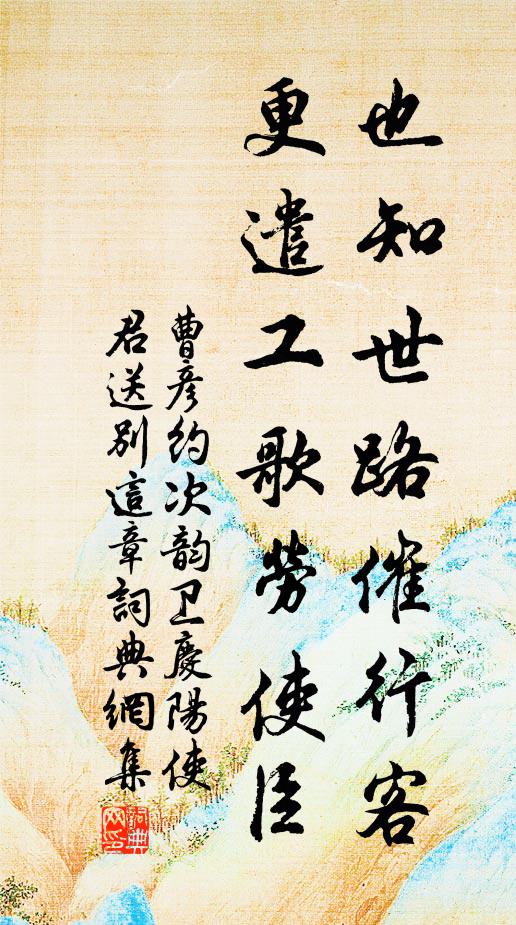 也知世路催行客
更遣工歌勞使臣
曹彥約次韵卫慶陽使
君送別這章詞典網集
詞典
网印